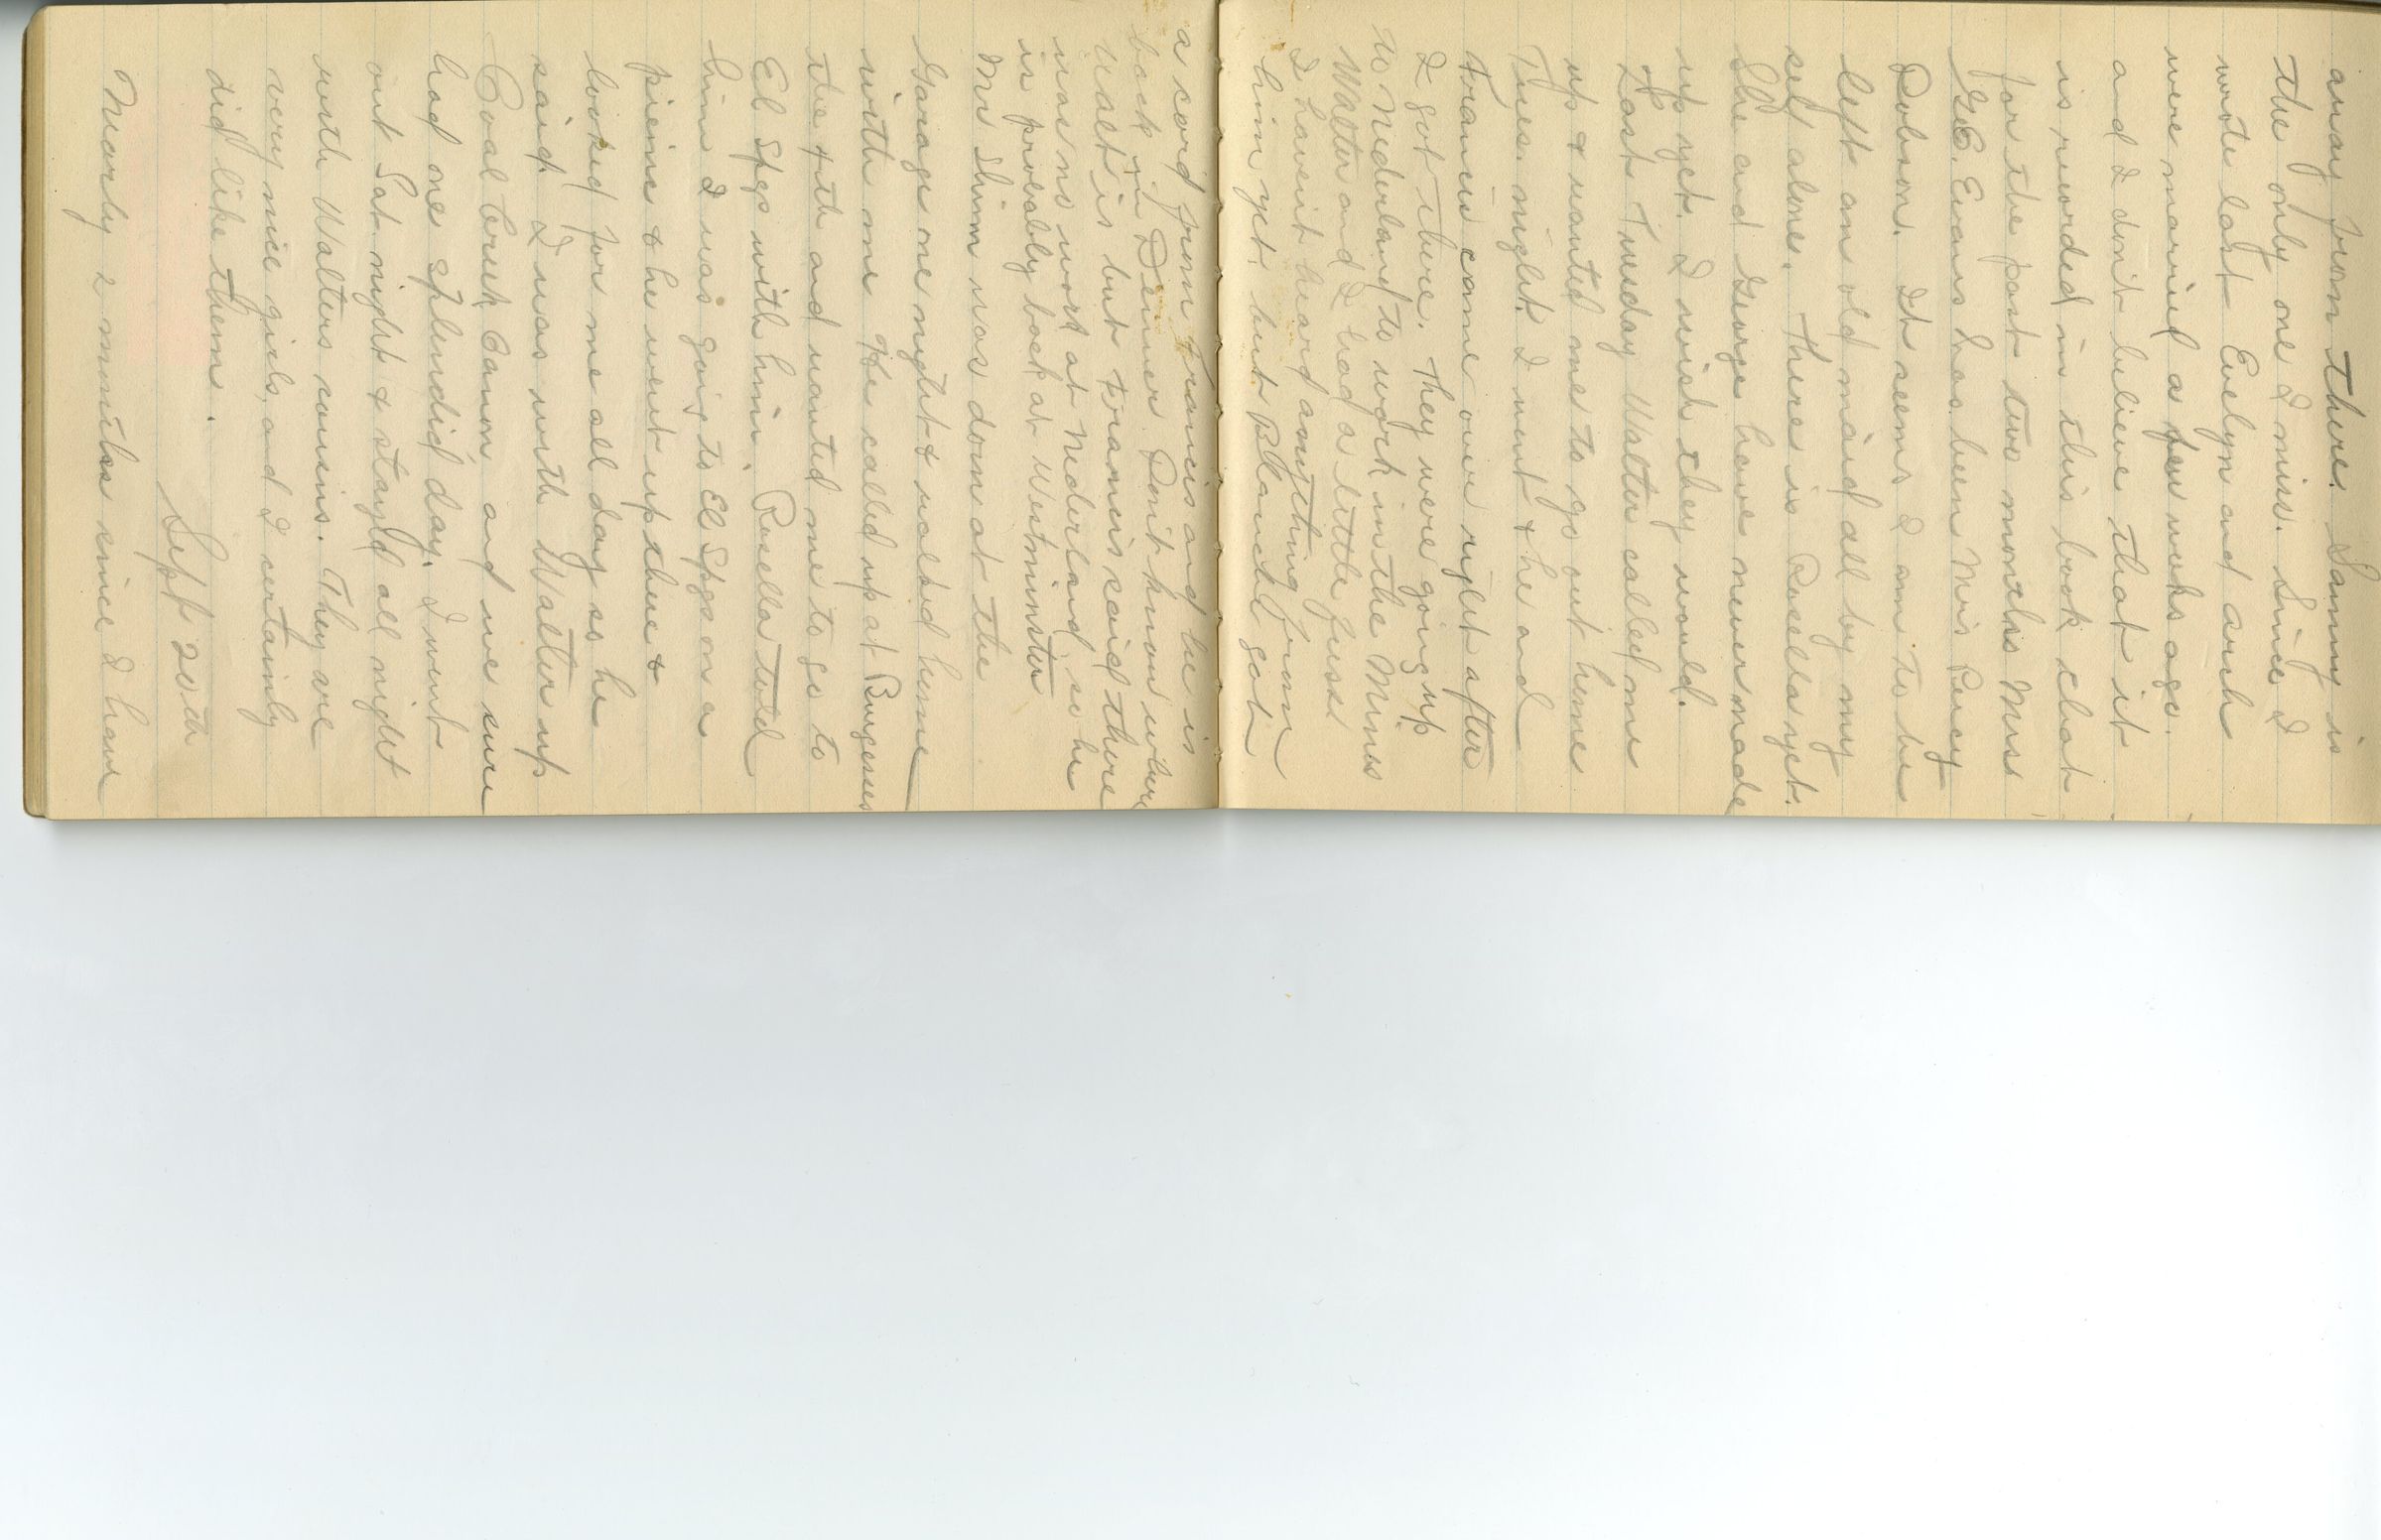 away from there. Sammy is
the only one I miss. Since I
wrote last Evelyn and arch
were married a few weeks ago.
and I don't believe that it
is recorded in this book that
for the past two months Miss
G.E. Evans has been Mrs Percy
Dobson. It seems I am to be
left an old maid all by my
self alone. There is Rosella yet.
She and George have never made
up yet. I wish they would.
Last Tuesday Walter called me
up & wanted me to go out home
Tues. night. I went & he and
Francis come over right after
I got there. They were going up
to Nederland to work in the Mines
Walter and I had a little fuss
I haven't heard anything from
him yet. but Blanche got
a card from Francis and he is
back in Denver. Don't know where
Walt is but Francis said there
was no work at Nederland, so he
is proverbly back at Westminster
Mr Shinn was down at the
Garage one night & walked home
with me He called up at Burgesses
the 4th and wanted me to go to
El Spgs with him. Rosella told
him I was going to El Spgs on a
picnic & he went up there &
looked for me all day so he
said. I was with Walter up
Coal Creek Canon and we sure
had one splendid day. I went
out Sat night & stayed all night
with Walters cousins. They are
very nice girls, and I certainly
did like them.
Sept 20th
Nearly 2 months since I have